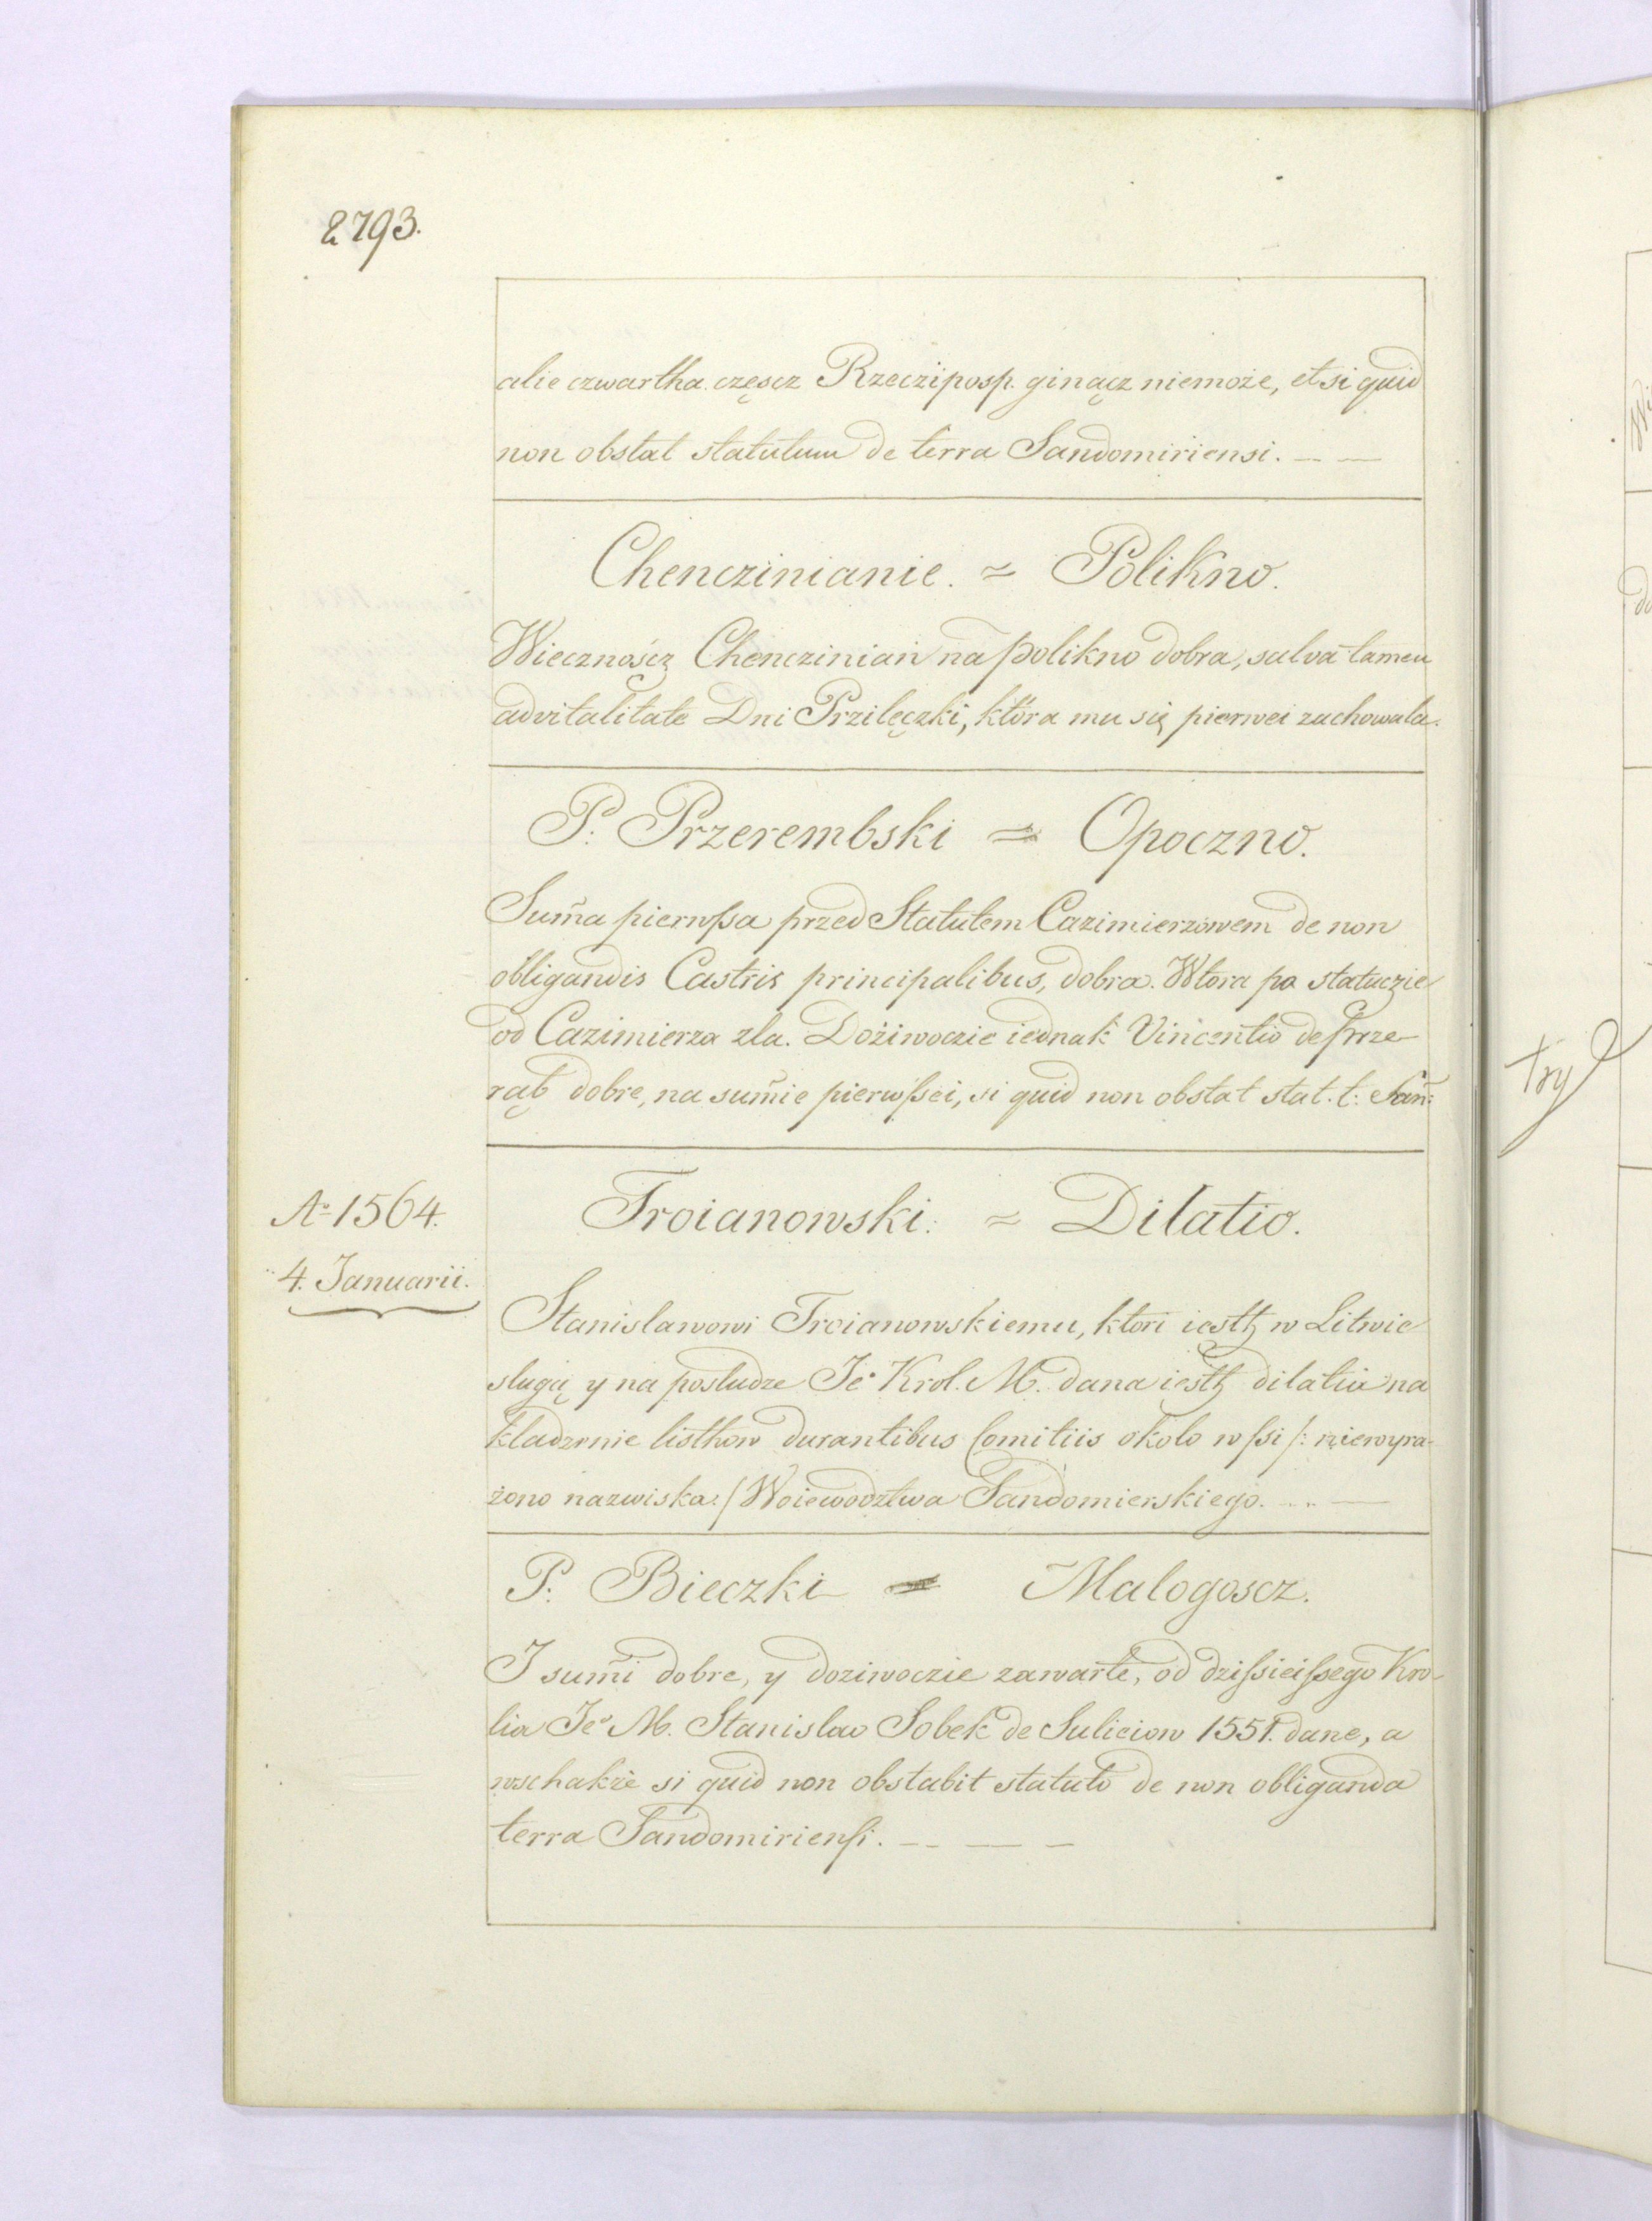 2793.
alie czwartha częscz Rzecziposp. ginącz niemoże, et si quid
non obstat statutum de terra Sandomiriensi. — —
Chenczinianie. = Polikno.
Wiecznoścz Chenczinian na polikno dobra, salva tamen
advitalitate Dni Przilęczki, która mu się pierwei zachowala.
P. Przerembski = Opoczno.
Sum̃a pierwßa przed Statutem Cazimierzowem de non
obligandis Castris principalibus, dobra. Wtora po statuczie
od Cazimierza zla. Dożiwoczie iednak Vincentio de Prze-
ręb dobre, na sum̃ie pierwßei, si quid non obstat stat. t: San:
Aº 1564.
4. Januarii.
Troianowski. = Dilatio.
Stanislawowi Troianowskiemu, ktori iesth w Litwie
slugą y na posludze Jeº Krol. M. dana iesth dilatia na
kladzenie listhow durantibus Comitiis okolo wßi /: niewyra-
żono nazwiska:/ Woiewodztwa Sandomierskiego. —
P. Bieczki = Malogoscz.
I sum̃i dobre, y doziwoczie zawarte, od dzißieißego Kro-
lia Jeº M. Stanislao Sobek de Suliciow 1551. dane, a
wschakże si quid non obstabit statuto de non obliganda
terra Sandomirienſi. — — —
try